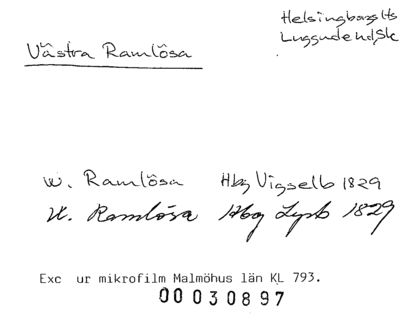 Helsingborgs lfs
Luggude hd, Sk
Västra Ramlösa
W. Ramlösa Hbg Vigselb 1829
W. Ramlösa Hbg Lysb 1829
Exc ur mikrofilm Malmöhus län KL 793.
00030897